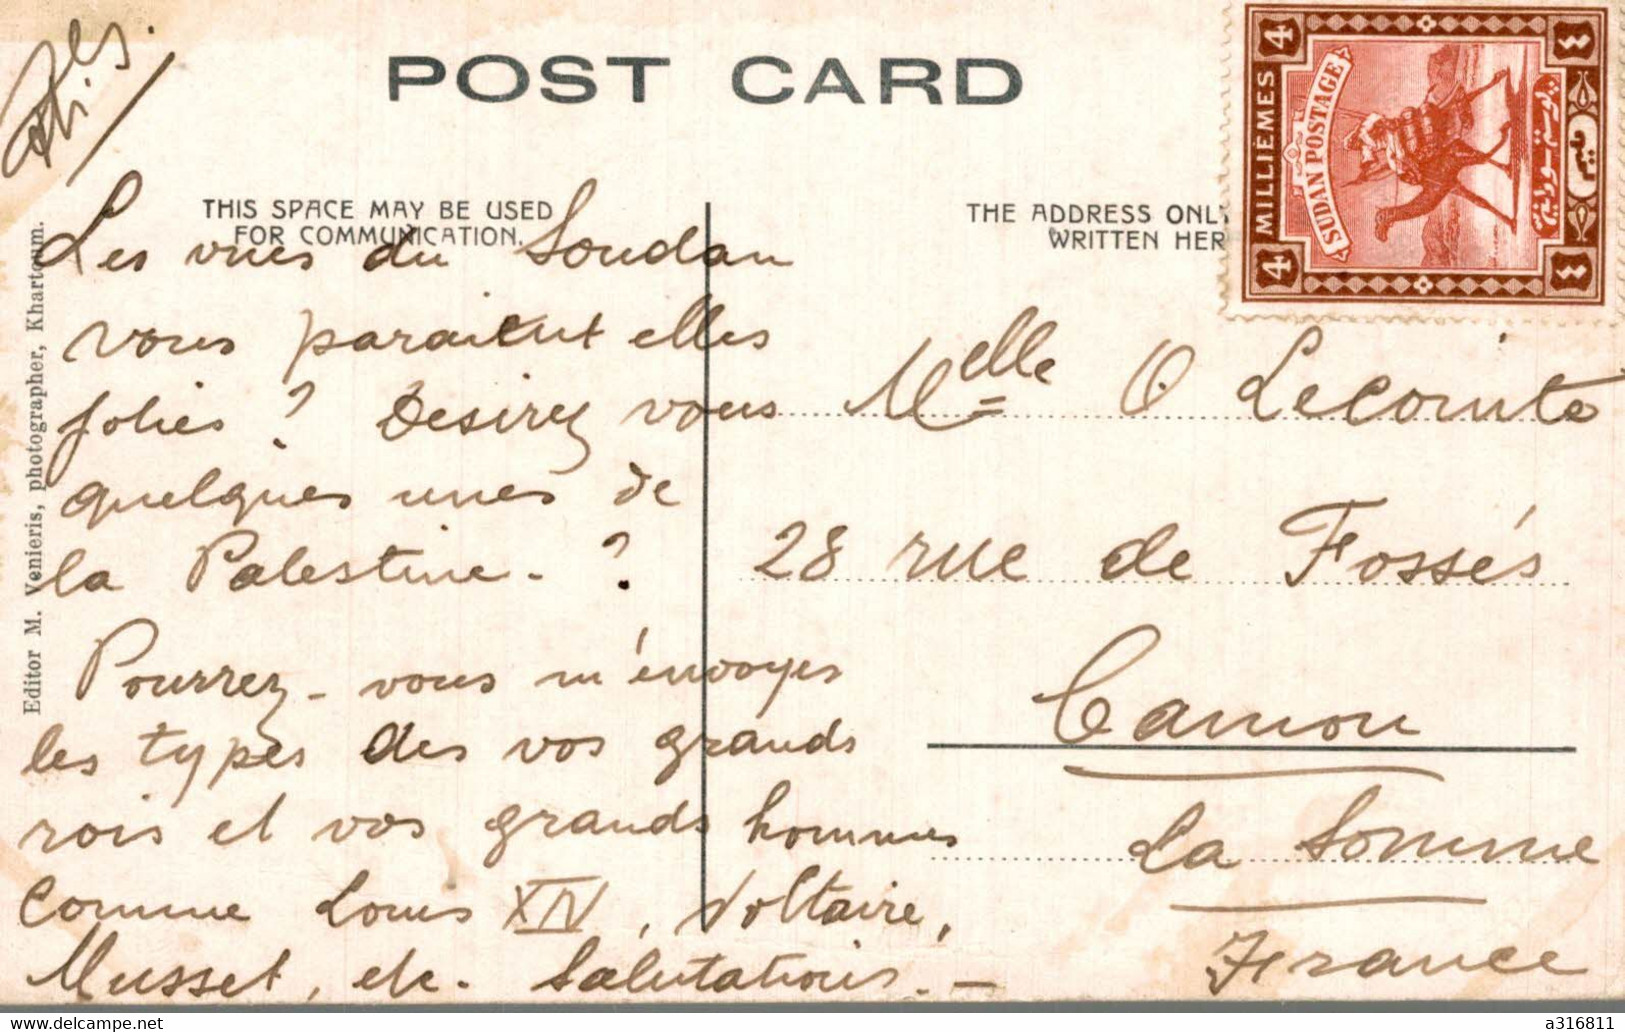 POST CARD
THIS SPACE MAY BE USED
FOR COMMUNICATION.
THE ADDRESS ONL
WRITTEN HER
Editor M. Venieris, photographer, Khartoum.
4 MILLIÈMES 4
SUDAN POSTAGE
Les vues du Soudan
vous paraitent elles
jolies ? Desirez vous
quelques unes de
la Palestine - ?
Pourrez-vous m'envoyes
les types des vos grands
rois et vos grands hommes
comme Louis XIV, Voltaire,
Musset, etc. Salutations. -
Melle O Lecointe
28 rue de Fossés
Camon
La Somme
France
a316811
delcampe.net